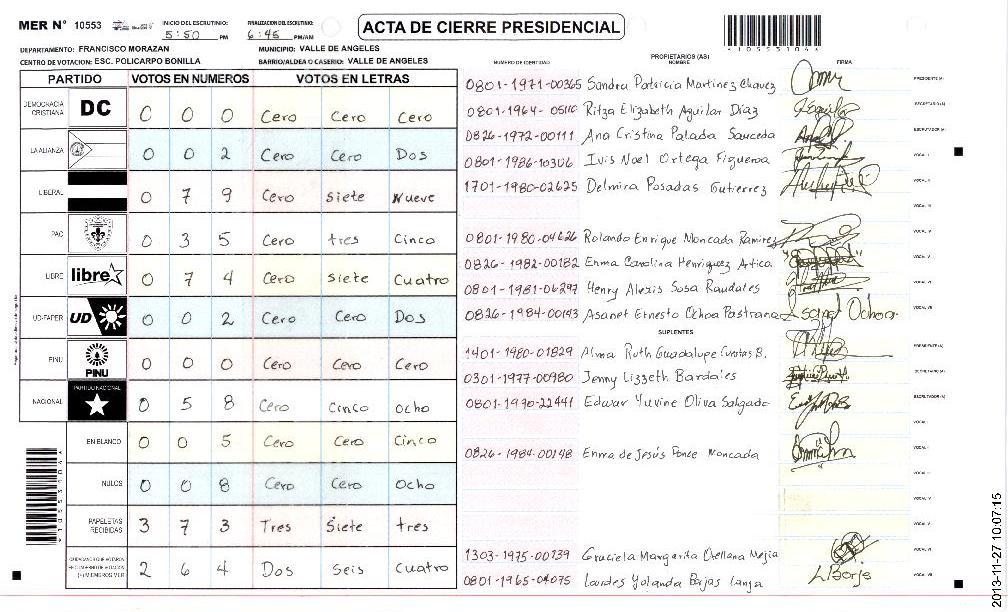 MER N° 10553 INICIO DEL ESCRUTINIO: 5:50 PM FINALIZACION DEL ESCRUTINIO: 6:45 PM/AM ACTA DE CIERRE PRESIDENCIAL
DEPARTAMENTO: FRANCISCO MORAZAN MUNICIPIO: VALLE DE ANGELES
CENTRO DE VOTACION: ESC. POLICARPO BONILLA BARRIO/ALDEA O CASERIO: VALLE DE ANGELES
PARTIDO VOTOS EN NUMEROS VOTOS EN LETRAS
DEMOCRACIA CRISTIANA DC 0 0 0 Cero Cero Cero
LA ALIANZA 0 0 2 Cero Cero Dos
LIBERAL 0 7 9 Cero Siete Nueve
PAC 0 3 5 Cero tres Cinco
LIBRE libre 0 7 4 Cero Siete Cuatro
UD-FAPER UD 0 0 2 Cero Cero Dos
PINU PINU 0 0 0 Cero Cero Cero
NACIONAL PARTIDO NACIONAL 0 5 8 Cero Cinco Ocho
EN BLANCO 0 0 5 Cero Cero Cinco
NULOS 0 0 8 Cero Cero Ocho
PAPELETAS RECIBIDAS 3 7 3 Tres Siete tres
2 6 4 Dos Seis Cuatro
NUMERO DE IDENTIDAD PROPIETARIOS (AS) NOMBRE FIRMA
0801-1971-00365 Sandra Patricia Martinez Chavez PRESIDENTE (A)
0801-1964- Ritza Elizabeth Aguilar Diaz SECRETARIO (A)
0826-1972-00111 Ana Cristina Palada Sauceda ESCRUTADOR (A)
0801-1986-10306 Ivis Noel Ortega Figueroa VOCAL I
1701-1980-02625 Delmira Posadas Gutierrez VOCAL II
VOCAL III
0801-1980-04626 Rolando Enrique Moncada Ramirez VOCAL IV
0826-1982-00182 Enma Carolina Henriquez Artica VOCAL V
0801-1981-06297 Henry Alexis Sosa Raudales VOCAL VI
0826-1984-00143 Asanet Ernesto Ochoa Pastrana Asanet Ochoa VOCAL VII
SUPLENTES
1401-1980-01829 Alma Ruth Guadalupe B. PRESIDENTE (A)
0301-1977-00980 Jenny Lizzeth Bardales SECRETARIO (A)
0801-1990-22441 Edwar Yuvine Oliva Salgado ESCRUTADOR (A)
VOCAL I
0826-1984-00148 Enma de Jesús Ponce Moncada VOCAL II
VOCAL III
VOCAL IV
VOCAL V
1303-1975-00739 Graciela Margarita Orellana Mejia VOCAL VI
0801-1965-04075 Lourdes Yolanda L Borjs VOCAL VII
2013-11-27 10:07:15